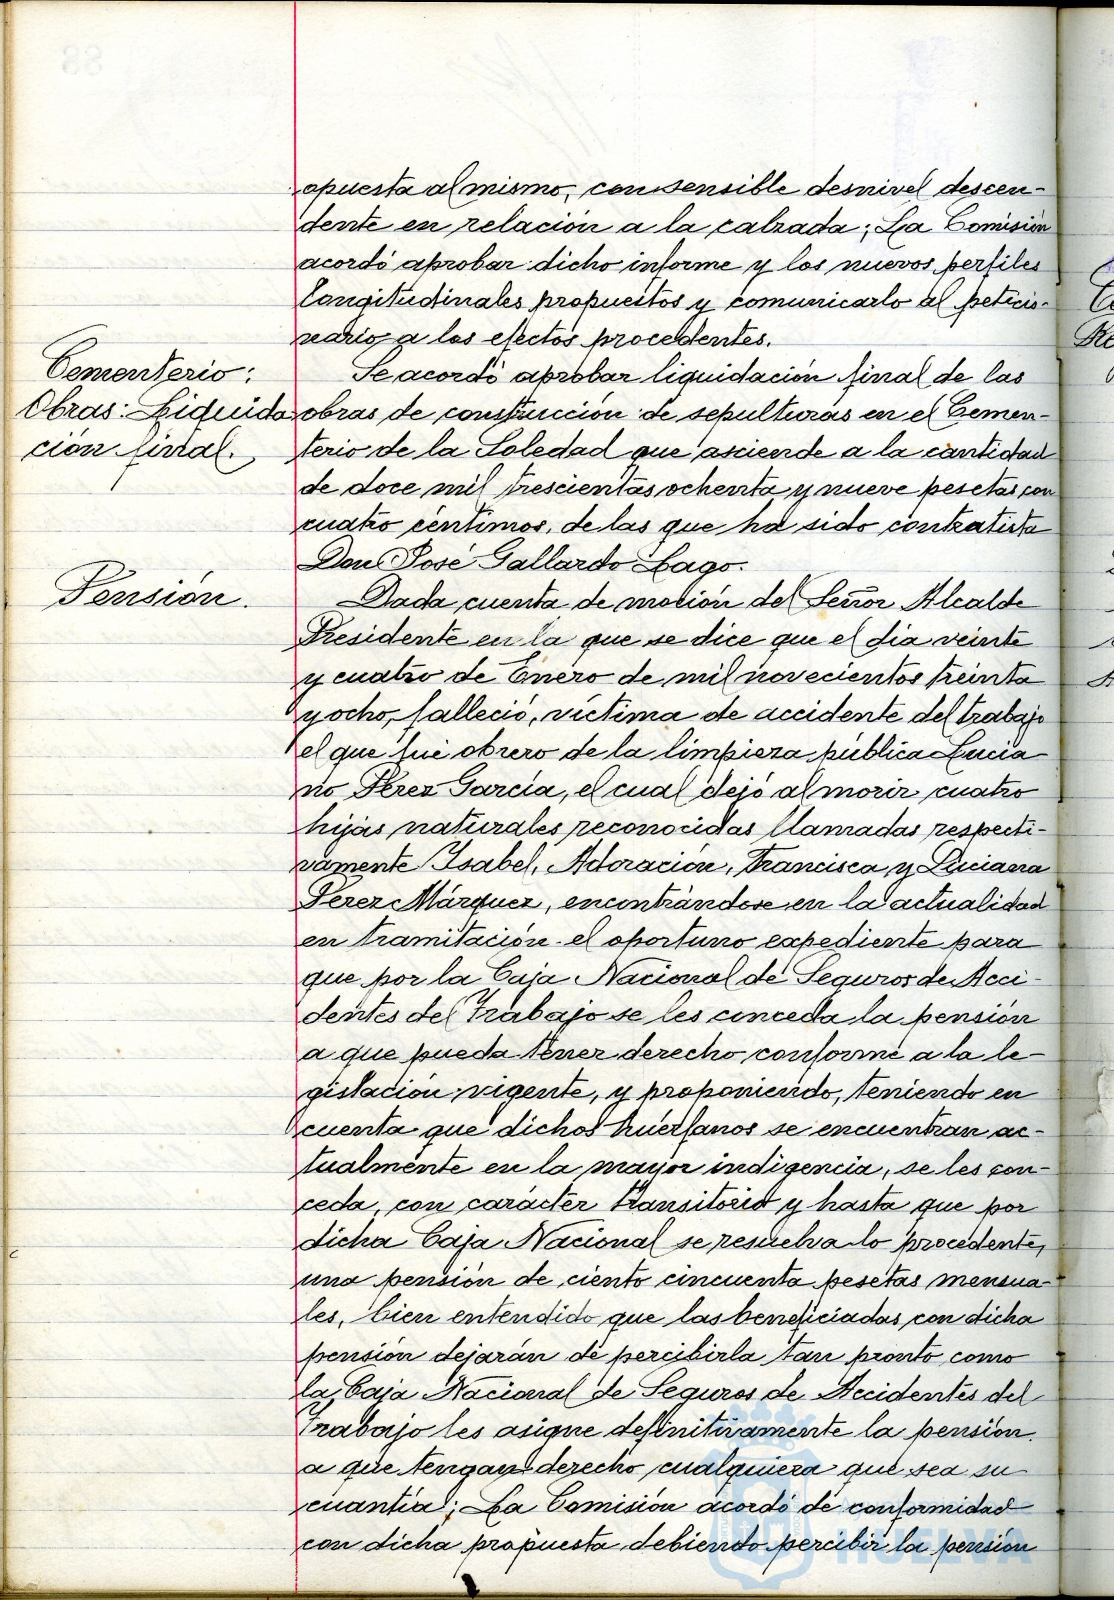 opuesta al mismo, con sensible desnivel descen-
dente en relación a la calzada; La Comisión
acordó aprobar dicho informe y los nuevos perfiles
longitudinales propuestos y comunicarlo al peticio-
nario a los efectos procedentes.
Cementerio:
Obras: Liquida
ción final.
Se acordó aprobar liquidación final de las
obras de construcción de sepulturas en el Cemen-
terio de la Soledad que asciende a la cantidad
de doce mil trescientas ochenta y nueve pesetas con
cuatro céntimos, de las que ha sido contratista
Don José Gallardo Lago.
Pensión.
Dada cuenta de moción del Señor Alcalde
Presidente en la que se dice que el día veinte
y cuatro de Enero de mil novecientos treinta
y ocho, falleció, víctima de accidente del trabajo
el que fué obrero de la limpieza pública Lucia
no Pérez García, el cual dejó al morir cuatro
hijas naturales reconocidas llamadas respecti-
vamente Isabel, Adoración, Francisca y Luciana
Perez Márquez, encontrándose en la actualidad
en tramitación el oportuno expediente para
que por la Caja Nacional de Seguros de Acci-
dentes del Trabajo se les cinceda la pensión
a que pueda tener derecho conforme a la le-
gislación vigente, y proponiendo, teniendo en
cuenta que dichos huérfanos se encuentran ac-
tualmente en la mayor indigencia, se les con-
ceda, con carácter transitorio y hasta que por
dicha Caja Nacional se resuelva lo procedente,
una pensión de ciento cincuenta pesetas mensua-
les, bien entendido que las beneficiadas con dicha
pensión dejarán de percibirla tan pronto como
la Caja Nacional de Seguros de Accidentes del
Trabajo les asigne definitivamente la pensión
a que tengan derecho cualquiera que sea su
cuantía; La Comisión acordó de conformidad
con dicha propuesta debiendo percibir la pensión
HUELVA